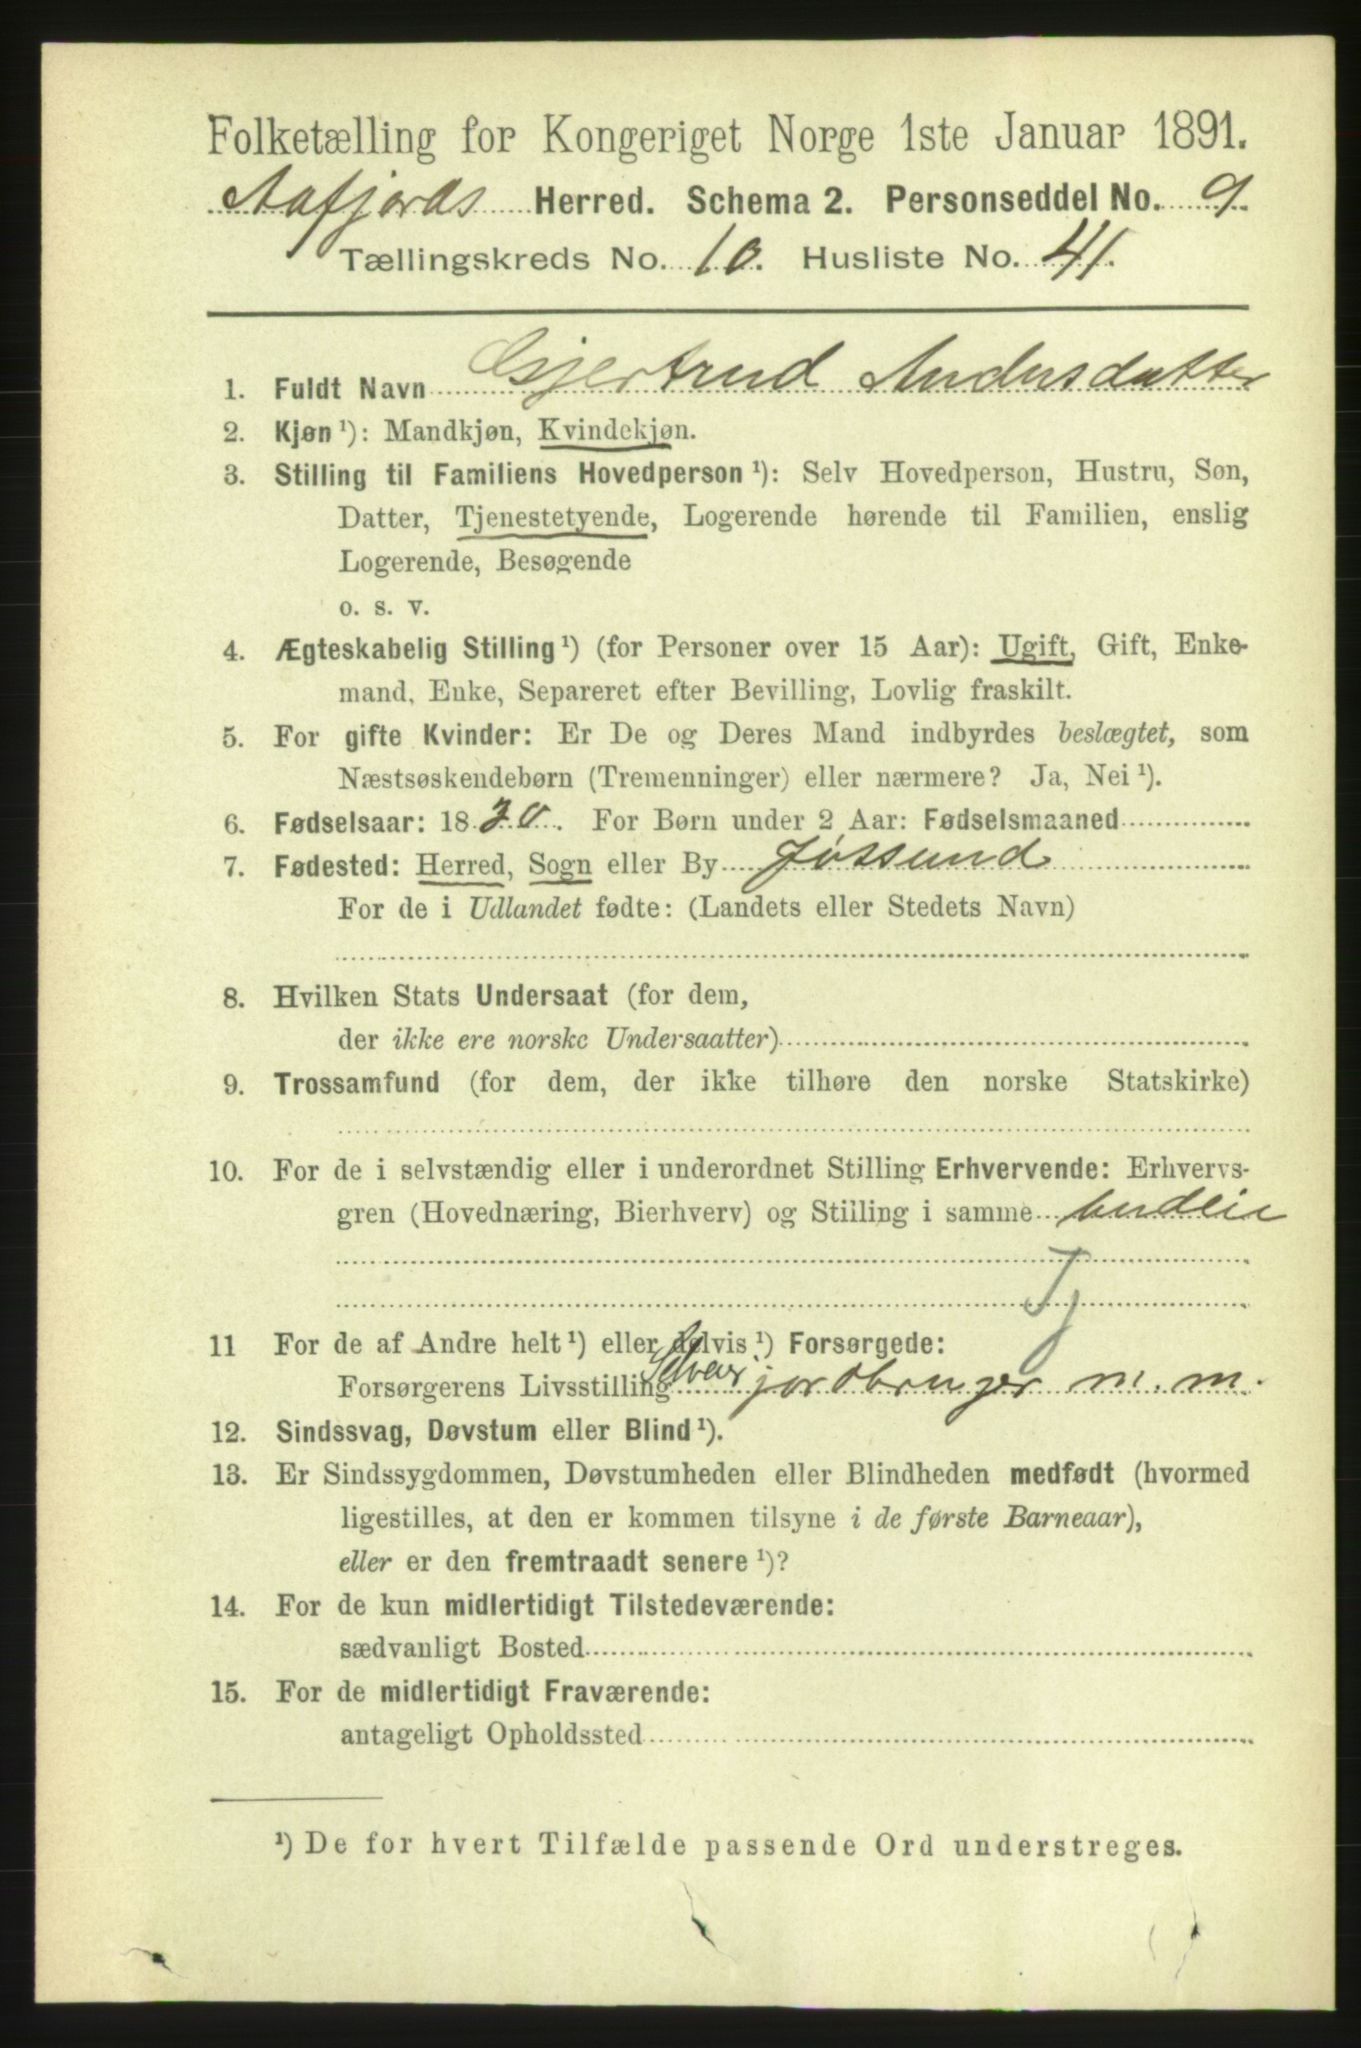 Folketælling for Kongeriget Norge 1ste Januar 1891.
Aafjords Herred. Schema 2. Personseddel No. 9.
Tællingskreds No. 10. Husliste No. 41.
1. Fuldt Navn Gjertrud Andersdatter
2. Kjøn ¹): Mandkjøn, Kvindekjøn.
3. Stilling til Familiens Hovedperson ¹): Selv Hovedperson, Hustru, Søn,
Datter, Tjenestetyende, Logerende hørende til Familien, enslig
Logerende, Besøgende
o. s. v.
4. Ægteskabelig Stilling ¹) (for Personer over 15 Aar): Ugift, Gift, Enke-
mand, Enke, Separeret efter Bevilling, Lovlig fraskilt.
5. For gifte Kvinder: Er De og Deres Mand indbyrdes beslægtet, som
Næstsøskendebørn (Tremenninger) eller nærmere? Ja, Nei ¹).
6. Fødselsaar: 1870. For Børn under 2 Aar: Fødselsmaaned
7. Fødested: Herred, Sogn eller By Jøssund
For de i Udlandet fødte: (Landets eller Stedets Navn)
8. Hvilken Stats Undersaat (for dem,
der ikke ere norske Undersaatter)
9. Trossamfund (for dem, der ikke tilhøre den norske Statskirke)
10. For de i selvstændig eller i underordnet Stilling Erhvervende: Erhvervs-
gren (Hovednæring, Bierhverv) og Stilling i samme
Tj
11 For de af Andre helt ¹) eller delvis ¹) Forsørgede:
Forsørgerens Livsstilling Selveier jordbruger m. m.
12. Sindssvag, Døvstum eller Blind ¹).
13. Er Sindssygdommen, Døvstumheden eller Blindheden medfødt (hvormed
ligestilles, at den er kommen tilsyne i de første Barneaar),
eller er den fremtraadt senere ¹)?
14. For de kun midlertidigt Tilstedeværende:
sædvanligt Bosted
15. For de midlertidigt Fraværende:
antageligt Opholdssted
¹) De for hvert Tilfælde passende Ord understreges.